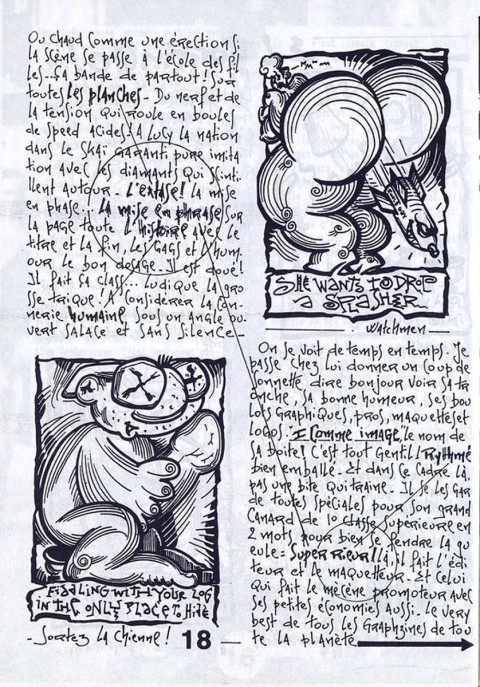 Ou chaud comme une érection si
la scène se passe à l'école des fil
les - Sa bande de partout ! Sur
toutes les planches - Du nerf et de
la tension qui roule en boules
de speed acides ! A Lucy la nation
dans le skaï garanti pure imita
tion avec les diamants qui scinti-
llent autour - L'extase ! La mise
en phase... la mise en phrase sur
la page toute l'histoire avec le
titre et la fin, les gags et l'hum
our le bon dosage - Il est doué !
Il fait sa class... ludique la gro
sse trique ! A considérer la con-
nerie humaine sous un angle ou
vert salace et sans silence -
SHE WANTS TO DROP
A SPLASHER
Watchmen
On se voit de temps en temps. Je
passe chez lui donner un coup de
sonnette dire bonjour voir sa tr
onche, sa bonne humeur, ses bou
lots graphiques, pros, maquettes et
logos. "I comme image", le nom de
sa boîte ! C'est tout gentil ! Rythmé
bien emballé. Et dans ce cadre là,
pas une bite qui traine. Il se les gar
de toutes spéciales pour son grand
canard de la classe supérieure en
2 mots pour bien se fendre la gu
eule : Super Rieur ! Là, il fait l'édi
teur et le maquetteur. Et celui
qui fait le mécène promoteur avec
ses petites économies aussi. Le very
best de tous les Graphzines de tou
te la planète
FIDDLING WITH YOUR LOG
IN THE ONLY PLACE TO HIDE
- Sortez la Chienne !
18